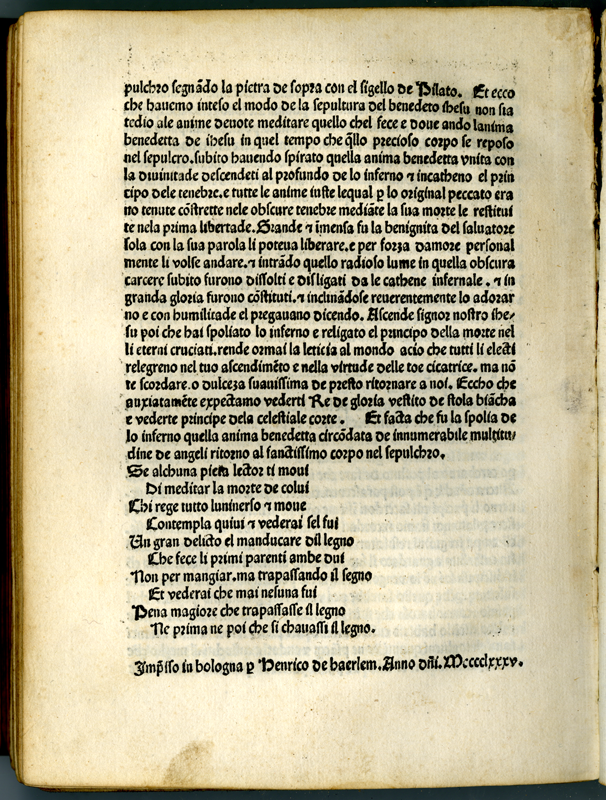 pulchro segnãdo la pietra de sopra con el sigello de Pilato. Et ecco
che hauemo inteso el modo de la sepultura del benedeto ihesu non sia
tedio ale anime deuote meditare quello chel fece e doue ando lanima
benedetta de ihesu in quel tempo che q̃llo precioso corpo se reposo
nel sepulcro. subito hauendo spirato quella anima benedetta vnita con
la diuinitade descendeti al profundo de lo inferno ⁊ incatheno el prin
cipo dele tenebre. e tutte le anime iuste lequal ꝑ lo original peccato era
no tenute cõstrette nele obscure tenebre mediãte la sua morte le restitui
te nela prima libertade. Grande ⁊ ĩmensa fu la benignita del saluatore
sola con la sua parola li poteua liberare. e per forza damore personal
mente li volse andare. ⁊ intrãdo quello radioso lume in quella obscura
carcere subito furono dissolti e disligati da le cathene infernale. ⁊ in
granda gloria furono cõstituti. ⁊ inclinãdose reuerentemente lo adorar
no e con humilitade el pregauano dicendo. Ascende signor nostro ihe-
su poi che hai spoliato lo inferno e religato el principo della morte nel
li eterni cruciati. rende ormai la leticia al mondo acio che tutti li electi
relegreno nel tuo ascendimẽto e nella virtude delle toe cicatrice. ma nõ
te scordare. o dulceza suauissima de presto ritornare a noi. Eccho che
anxiatamẽte expectamo vederti Re de gloria vestito de stola biãcha
e vederte principe dela celestiale corte. Et facta che fu la spolia de
lo inferno quella anima benedetta circõdata de innumerabile multitu-
dine de angeli ritorno al sanctissimo corpo nel sepulchro.
Se alchuna pieta lector ti moui
Di meditar la morte de colui
Chi rege tutto luniuerso ⁊ moue
Contempla quiui ⁊ vederai sel fui
Un gran delicto el manducare dil legno
Che fece li primi parenti ambe dui
Non per mangiar. ma trapassando il segno
Et vederai che mai nesuna fui
Pena magiore che trapassasse il legno
Ne prima ne poi che si chauassi il legno.
Imp̃sso in bologna ꝑ Henrico de haerlem. Anno dñi. Mcccclxxxv.